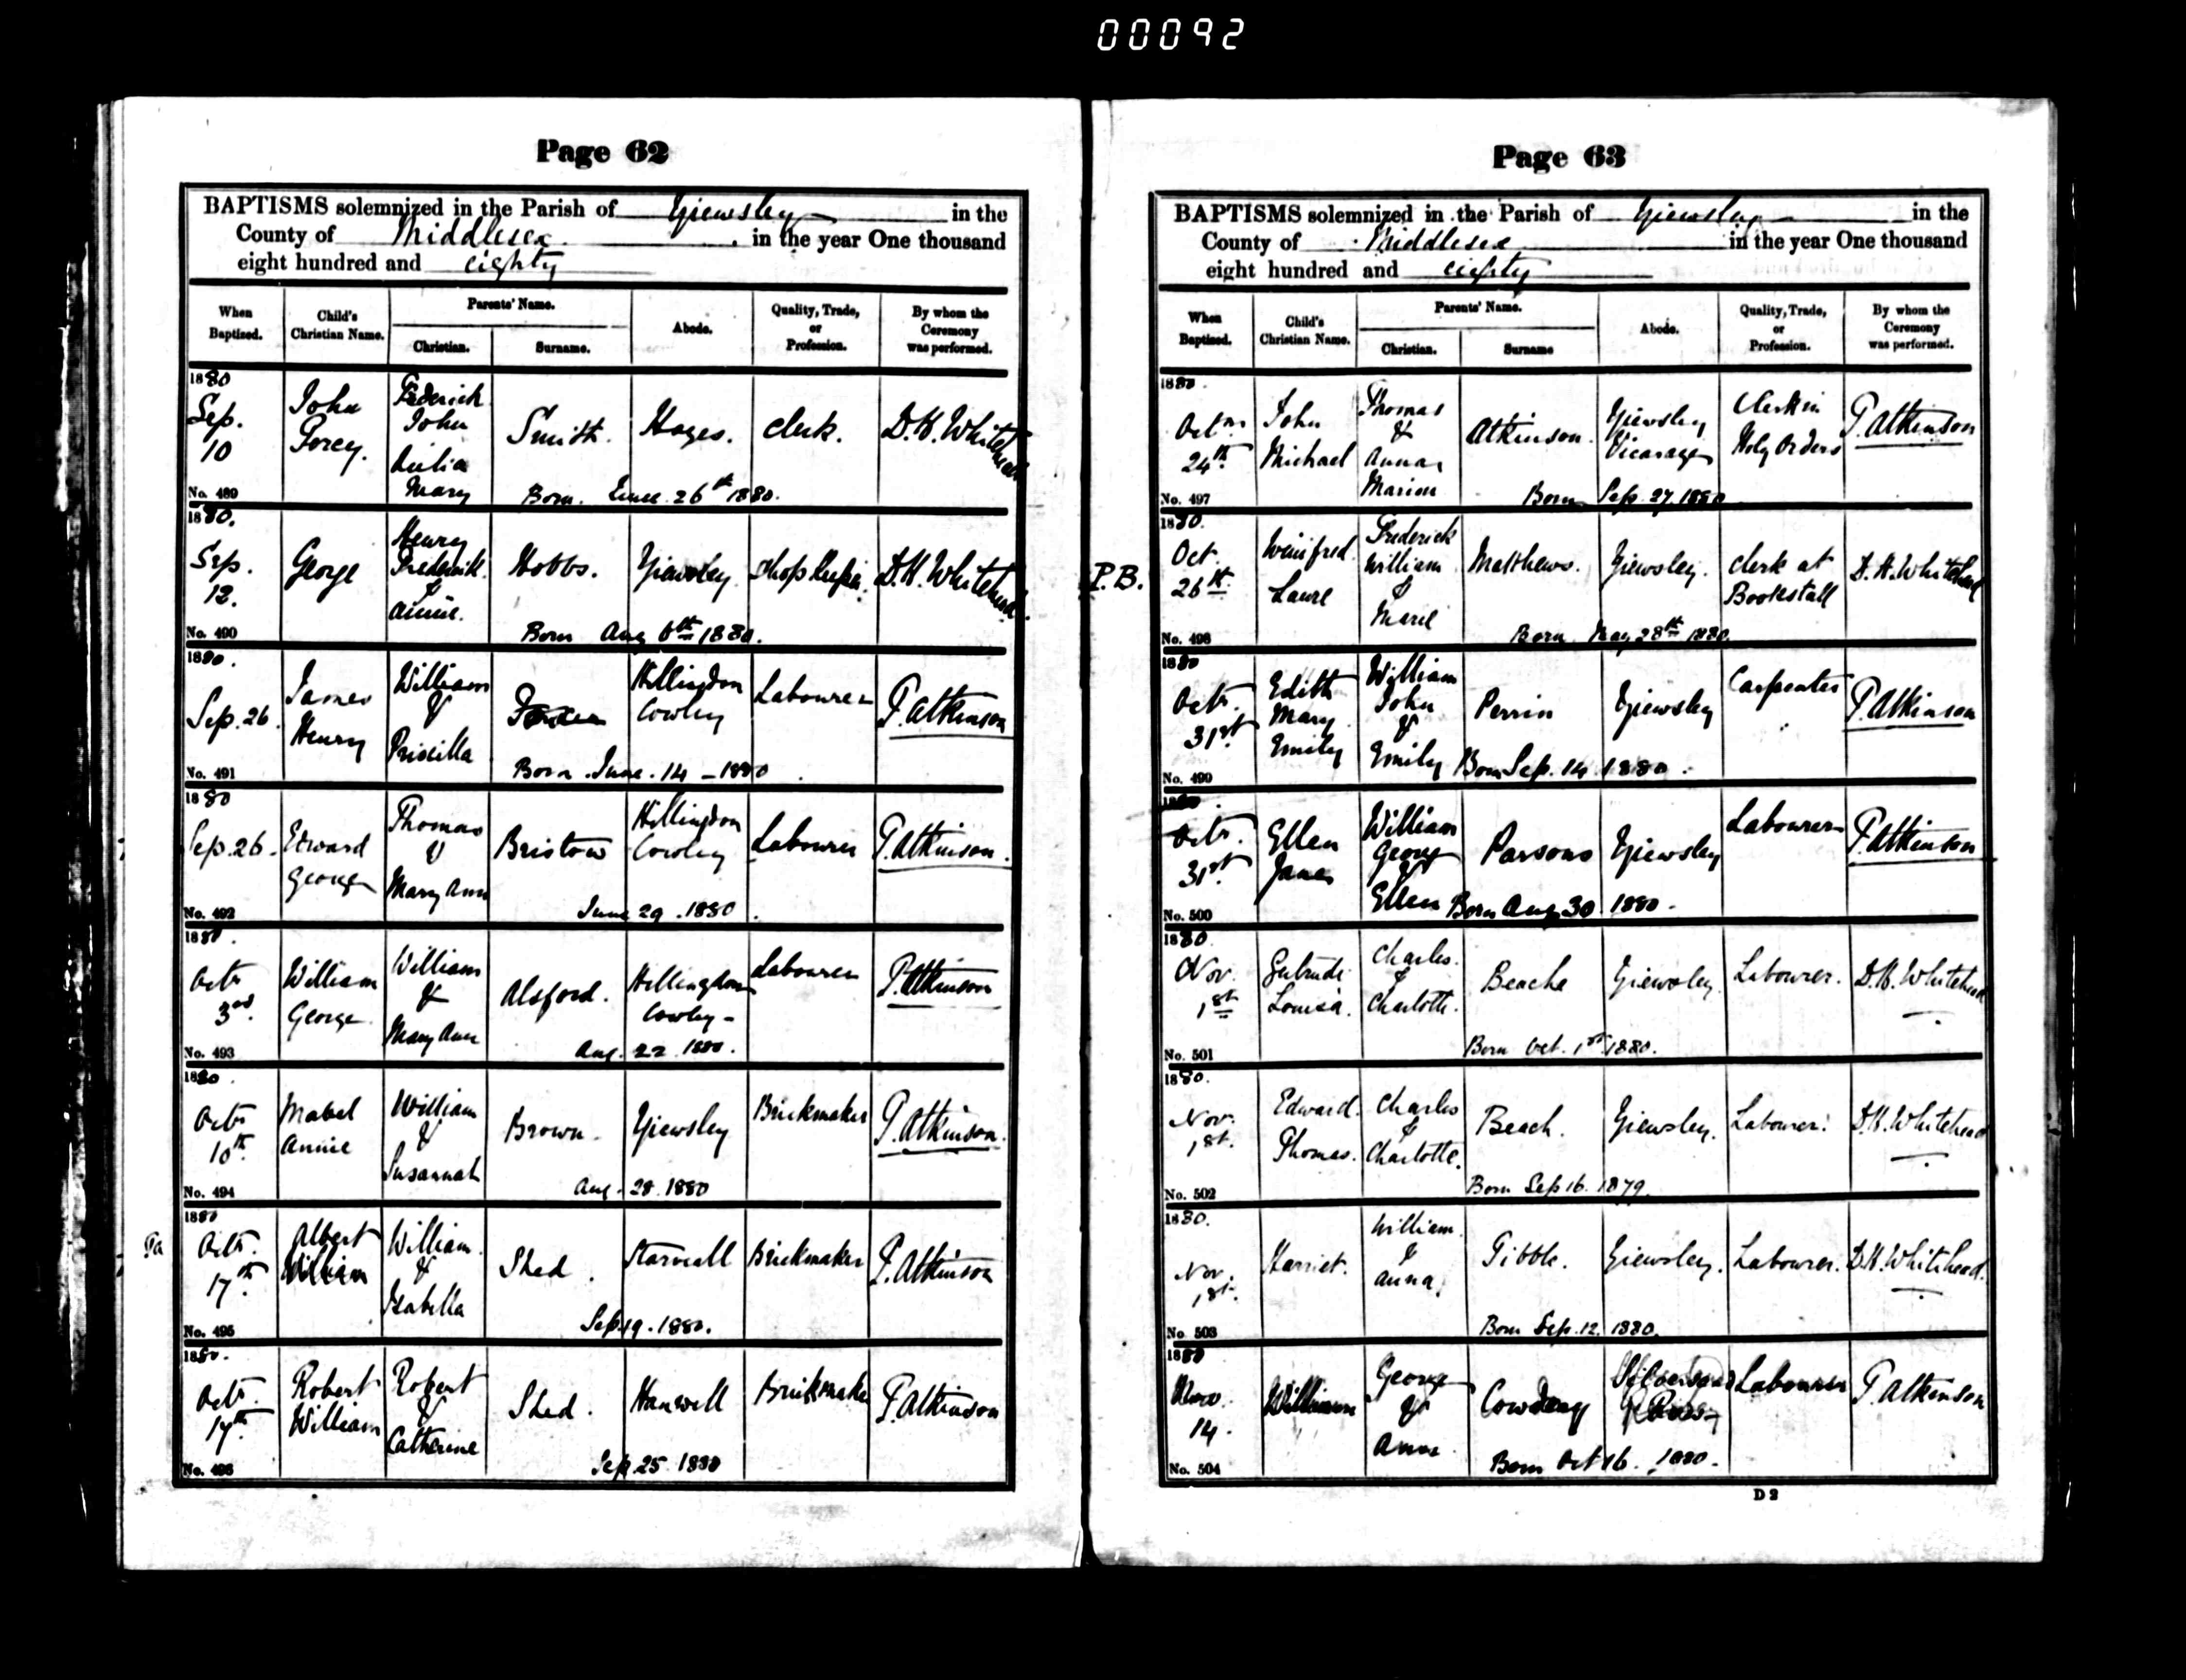 00092
Page 62
BAPTISMS solemnized in the Parish of Yiewsley in the
County of Middlesex in the year One thousand
eight hundred and eighty
When Baptized. Child's Christian Name. Parents' Name. Christian. Surname. Abode. Quality, Trade, or Profession. By whom the Ceremony was performed.
1880 Sep. 10 John Percy. Frederick John Julia Mary Smith. Hayes. Clerk. D.H. Whitehead
No. 489 Born. June 26th 1880.
1880. Sep. 12. George Henry Frederick & Annie. Hobbs. Yiewsley. Shop Keeper. D.H. Whitehead.
No. 490 Born Aug 6th 1880.
1880. Sep. 26. James Henry William & Priscilla Hillingdon Cowley Labourer T. Atkinson
No. 491 Born June 14 - 1880
1880 Sep. 26. Edward George Thomas & Mary Ann Bristow Hillingdon Cowley Labourer T. Atkinson.
No. 492 June 29. 1880.
1880. Octr 3rd William George William & Mary Ann Alsford. Hillingdon Cowley - Labourer T. Atkinson
No. 493 Aug. 22. 1880.
1880. Octr 10th Mabel Annie William & Susannah Brown. Yiewsley Brickmaker T. Atkinson.
No. 494 Aug. 28. 1880
1880 Octr. 17th Albert William William & Isabella Shed. Starveall Brickmaker T. Atkinson
No. 495 Sep. 19. 1880.
1880. Octr. 17th Robert William Robert & Catherine Shed. Hanwell Brickmaker T. Atkinson
No. 496 Sep 25 1880
Page 63
BAPTISMS solemnized in the Parish of Yiewsley in the
County of Middlesex in the year One thousand
eight hundred and eighty
When Baptized. Child's Christian Name. Parents' Name. Christian. Surname Abode. Quality, Trade, or Profession. By whom the Ceremony was performed.
1880. Octr. 24th John Michael Thomas & Anna Marion Atkinson. Yiewsley Vicarage Clerk in Holy Orders T. Atkinson
No. 497 Born Sep. 27. 1880
P.B.
1880. Oct. 26th Winifred Laure Frederick William & Marie Matthews. Yiewsley. Clerk at Bookstall D.H. Whitehead
No. 498 Born May 28th 1880.
1880 Octr. 31st Edith Mary Emily William John & Emily Perrin Yiewsley Carpenter T. Atkinson
No. 499 Born Sep. 14 1880.
1880. Octr. 31st Ellen Jane William George & Ellen Parsons Yiewsley Labourer T. Atkinson
No. 500 Born Aug 30 1880.
1880 Nov. 1st Gertrude Louisa. Charles. & Charlotte. Beache Yiewsley. Labourer. D.H. Whitehead
No. 501 Born Oct. 1st 1880.
1880. Nov. 1st. Edward. Thomas. Charles & Charlotte. Beach. Yiewsley. Labourer. D.H. Whitehead
No. 502 Born Sep 16. 1879.
1880. Nov. 1st. Harriet. William. & Anna. Tibble. Yiewsley. Labourer. D.H. Whitehead.
No. 503 Born Sep. 12. 1880.
1880 Nov. 14. William George & Anne Cowdrey Labourer T. Atkinson
No. 504 Born Oct 16. 1880.
D 2